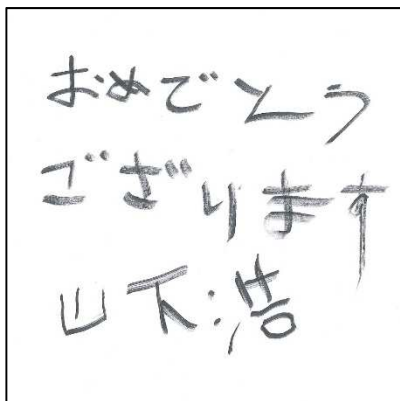 おめでとう
ござります
山下浩